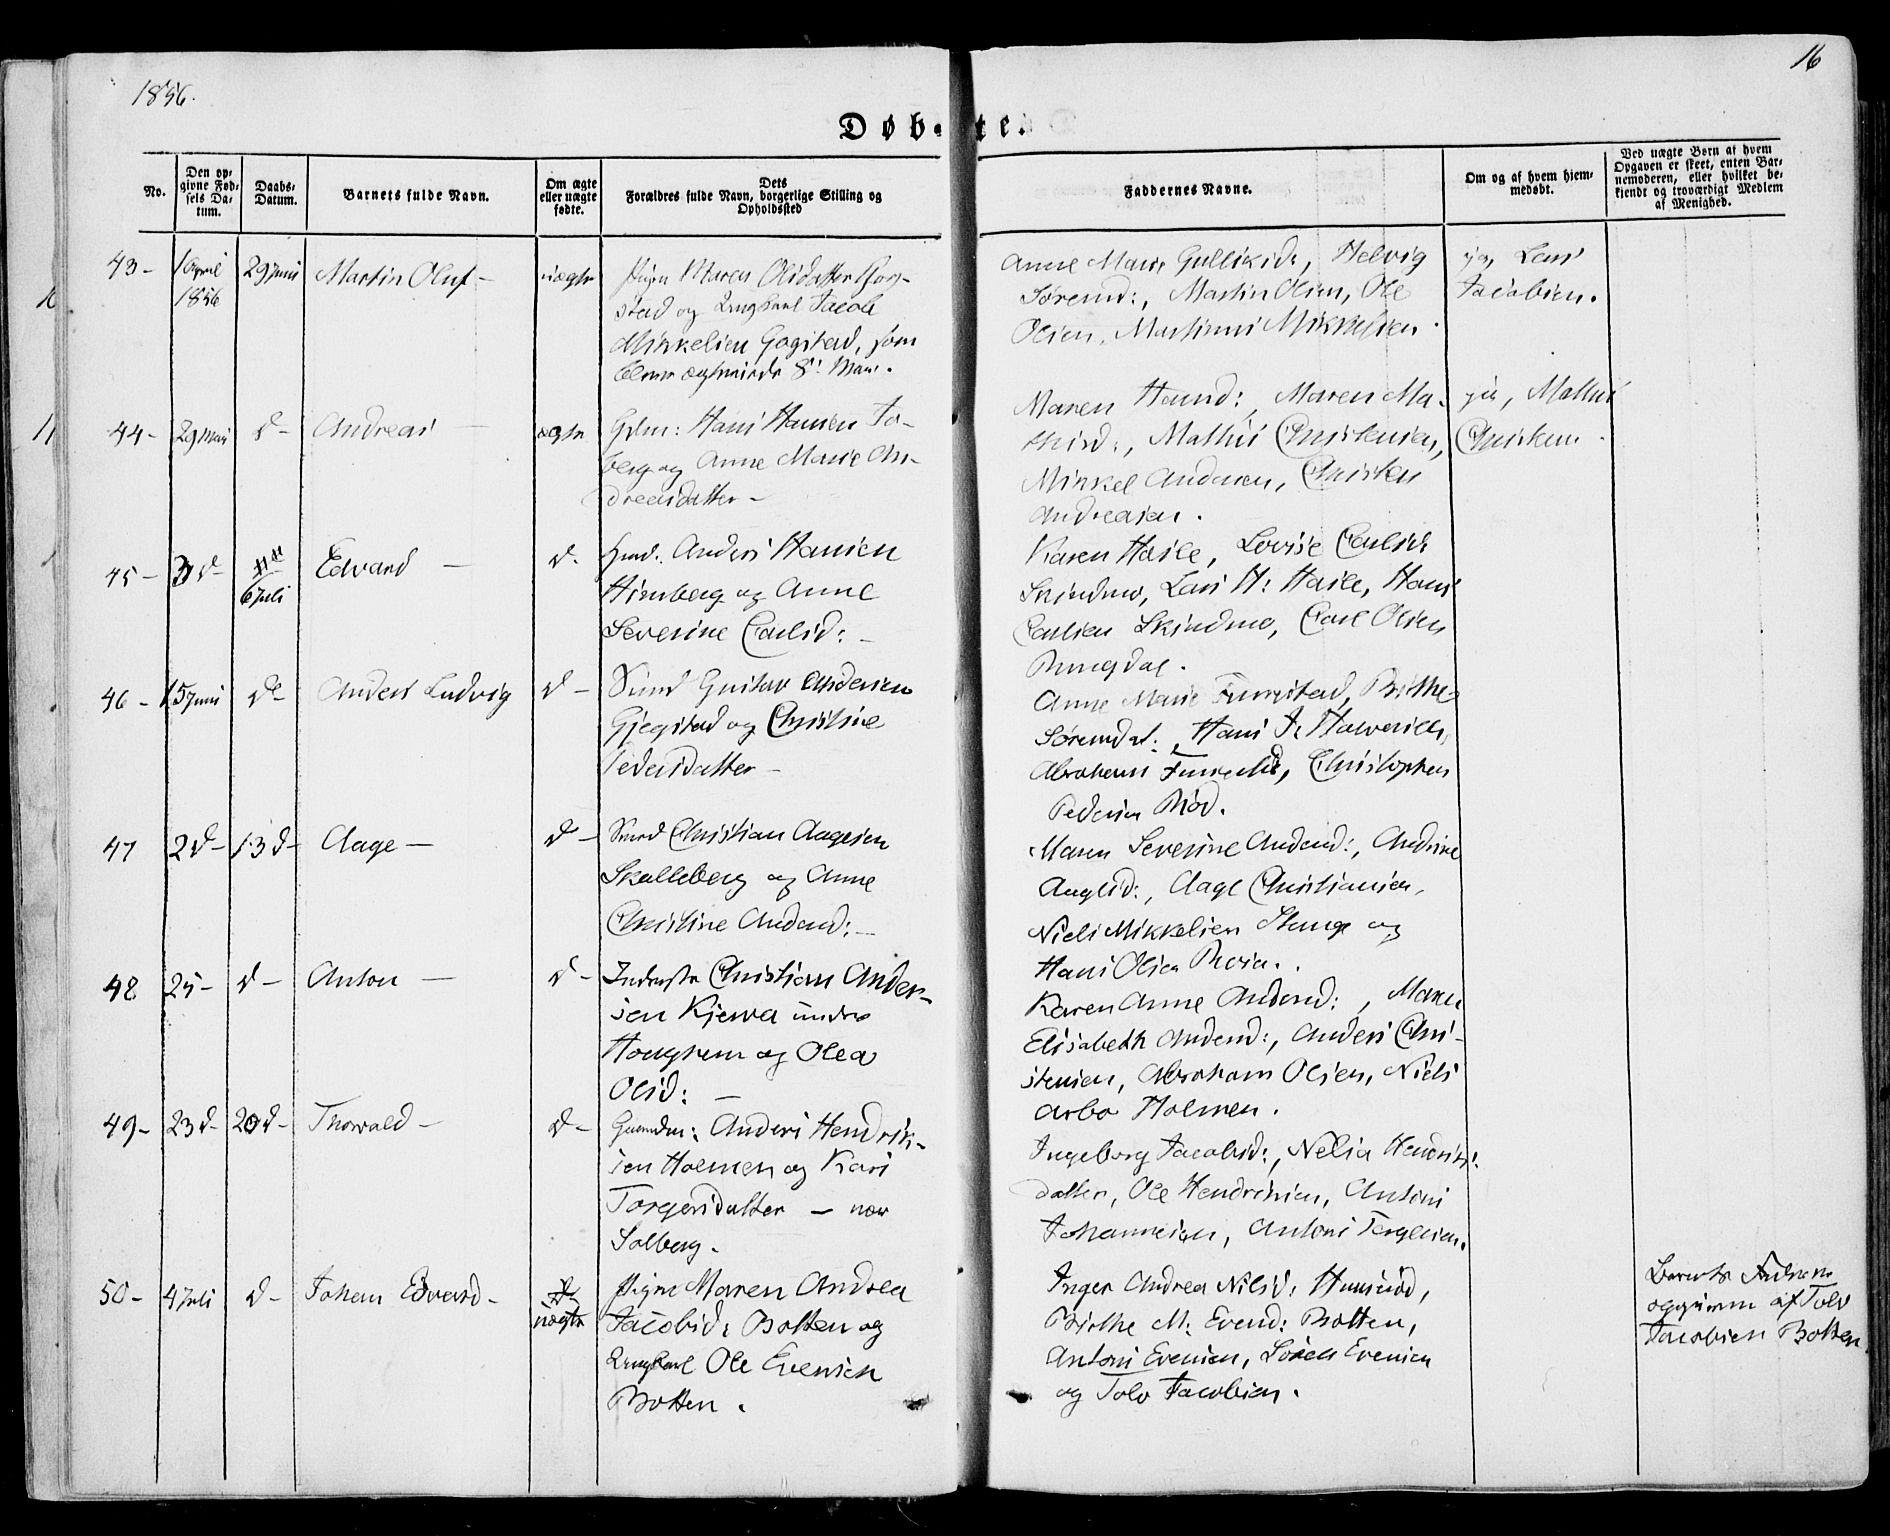 1856.
16
Døbte.
No.
Den opgivne Fødsels Datum.
Daabs-Datum.
Barnets fulde Navn.
Om ægte eller uægte fødte.
Dets Forældres fulde Navn, borgerlige Stilling og Opholdssted
Faddernes Navne.
Om og af hvem hjemmedøbt.
Ved uægte Børn af hvem Opgaven er skeet, enten Barnemoderen, eller hvilket bekjendt og troværdigt Medlem af Menighed.
43-
1 April 1856
29 Juni
Martin Oluf -
uægte
Pigen Maren Olsdatter
stad og Ungkarl Jacob
Mikkelsen Gogstad, som
Anne Marie Gulliksd:, Helvig
Sørensd:, Martin Olsen, Ole
Olsen, Martinus Mikkelsen.
ja, Lars
Jacobsen.
44-
29 Mai
d-
Andreas -
ægte
Gdm: Hans Hansen Fo-
berg og Anne Marie An-
dreasdatter -
Maren Hansd:, Maren Ma-
thisd:, Mathis Christensen,
Mikkel Andersen, Christen
Andreasen.
ja, Mathis
Christens.
45-
3 d-
6 Juli
Edvard -
d-
Husm: Anders Hansen
Himberg og Anne
Severine Carlsd: -
Karen Haile, Lovise Carlsd:
Skindmo, Lars H: Haile, Hans
Carlsen Skindmo, Carl Olsen
Ringdal.
46-
15 Juni
d-
Anders Ludvig
d-
Smed Gustav Andersen
Gjegstad og Christine
Pedersdatter -
Anne Marie Furustad, Birthe
Sørensdat:, Hans J: Halvorsen,
Abraham Furustad, Christopher
Pedersen Rød.
47
2 d-
13 d-
Aage -
d-
Smed Christian Aagesen
Skalleberg og Anne
Christine Andersd: -
Maren Severine Andersd:, Andrine
Aagesd:, Aage Christiansen,
Niels Mikkelsen Stange og
Hans Olsen
48
25-
d-
Anton -
d-
Inderste Christian Ander-
sen Kjerra under
Haughem og Olea
Olsd: -
Karen Anne Andersd:, Maren
Elisabeth Andersd:, Anders Chri-
stensen, Abraham Olsen, Niels
Arbo Holmen.
49-
23 d-
20 d-
Thorvald -
d-
Anders Hendrik-
sen Holmen og Kari
Torgersdatter - nær
Solberg.
Ingeborg Jacobsd:, Nelia Hendriks-
datter, Ole Hendriksen, Antoni
Johannesen, Antoni Torgersen.
50-
4 Juli
d-
Johan Edvard -
uægte
Pigen Maren Andrea
Jacobsd: Botten og
Ungkarl Ole Evensen
Botten.
Inger Andrea Nilsd:
Birthe M: Evensd: Botten,
Antoni Evensen, Søren Evensen
og Tolv Jacobsen.
Barnets
opgiven af Tolv
Jacobsen Botten